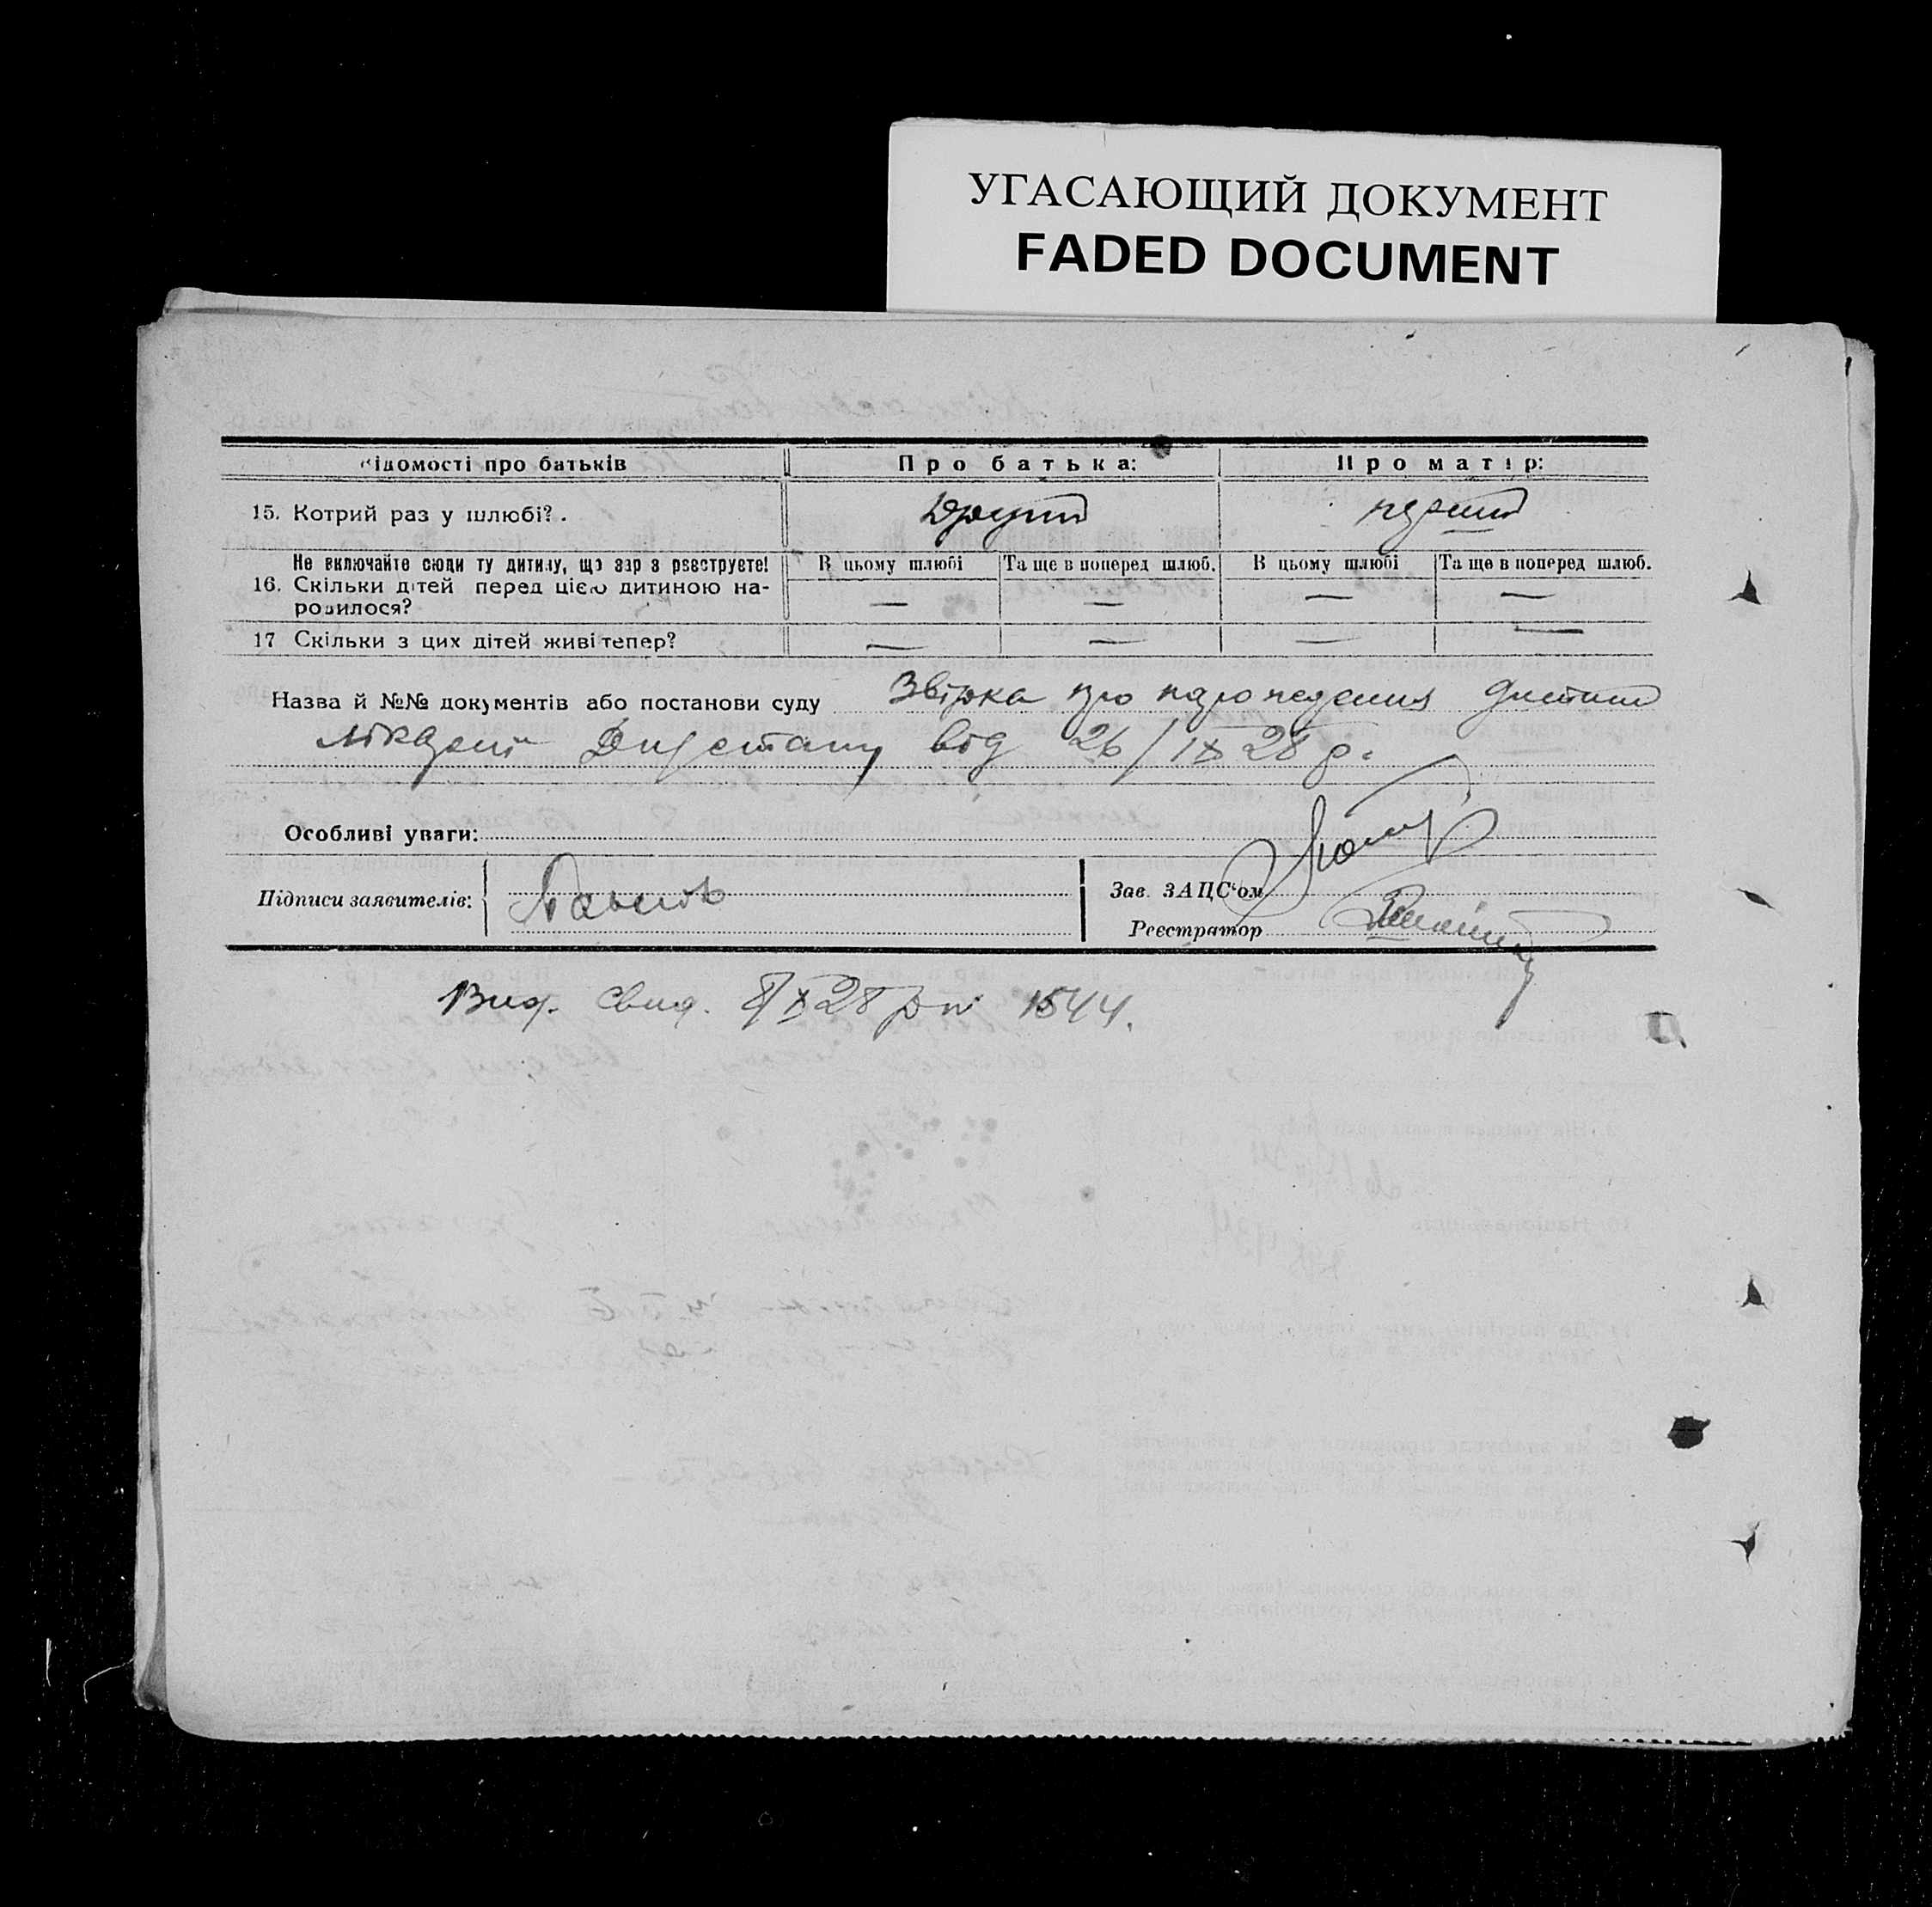 УГАСАЮЩИЙ ДОКУМЕНТ
FADED DOCUMENT
ідомості про батьків Про батька: Про матір:
15. Котрий раз у шлюбі? . другий перший
Не включайте сюди ту дитину, що зар з реєструєте! В цьому шлюбі Та ще в поперед шлюб. В цьому шлюбі Та ще в поперед шлюб.
16. Скільки дітей перед цією дитиною на- — — — —
родилося?
17 Скільки з цих дітей живі тепер? — — — —
Назва й №№ документів або постанови суду про
від 26/IX 28 р.
Особливі уваги:
Підписи заявителів:
Зав. ЗАЦС'ом
Реєстратор
Вид. свид. 8/X 28 р № 1544.